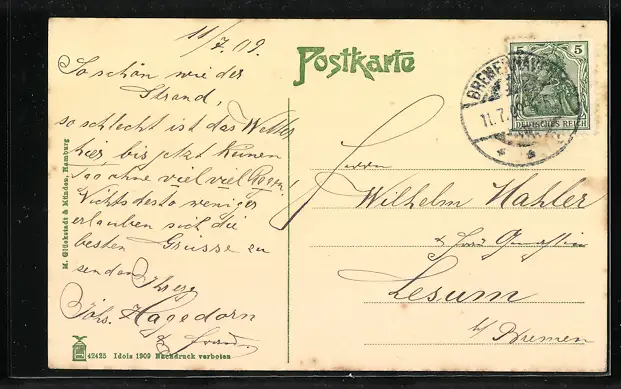 11/7.09.
Postkarte
So schön wie der
Strand,
so schlecht ist das Wetter
hier, bis jetzt keinen
Tag ohne viel viel Regen!
Nichts desto weniger
erlauben sich die
besten Grüsse zu
senden Ihre
Johs. Hagedorn
& Frau.
M. Glückstadt & Münden, Hamburg
42425 Idols 1909 Nachdruck verboten
5 5
DEUTSCHES REICH
BREMERHAVEN
11.7.09
Herrn
Wilhelm Mahler
& Frau Gemahlin
Lesum
b/Bremen